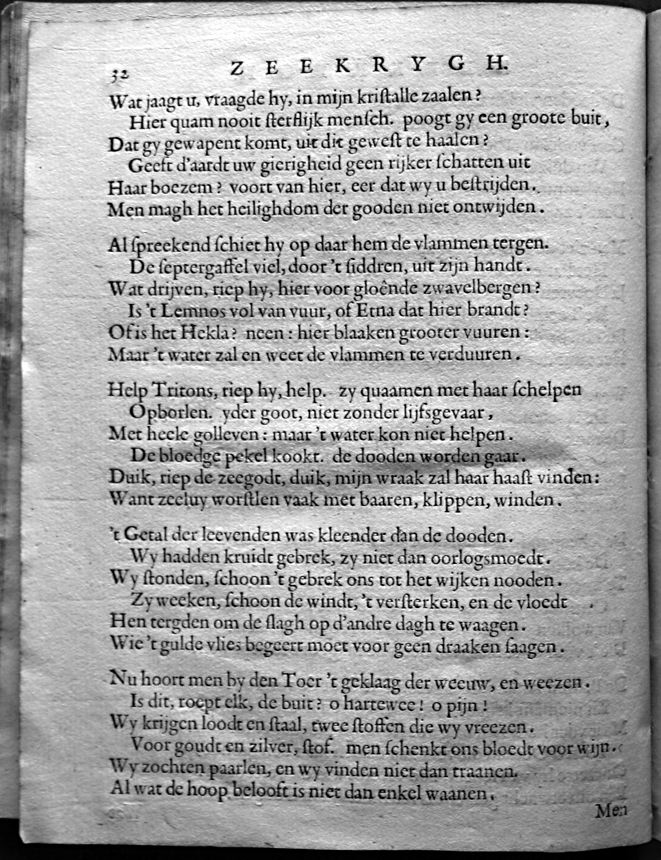 32 ZEEKRYGH.
Wat jaagt u, vraagde hy, in mijn kristalle zaalen?
Hier quam nooit sterflijk mensch. poogt gy een groote buit,
Dat gy gewapent komt, uit dit gewest te haalen?
Geeft d'aardt uw gierigheid geen rijker schatten uit
Haar boezem? voort van hier, eer dat wy u bestrijden.
Men magh het heilighdom der gooden niet ontwijden.
Al spreekend schiet hy op daar hem de vlammen tergen.
De septergaffel viel, door 't siddren, uit zijn handt.
Wat drijven, riep hy, hier voor gloênde zwavelbergen?
Is 't Lemnos vol van vuur, of Etna dat hier brandt?
Of is het Hekla? neen: hier blaaken grooter vuuren:
Maar 't water zal en weet de vlammen te verduuren.
Help Tritons, riep hy, help. zy quaamen met haar schelpen
Opborlen. yder goot, niet zonder lijfsgevaar,
Met heele golleven: maar 't water kon niet helpen.
De bloedge pekel kookt. de dooden worden gaar.
Duik, riep de zeegodt, duik, mijn wraak zal haar haast vinden:
Want zeeluy worstlen vaak met baaren, klippen, winden.
't Getal der leevenden was kleender dan de dooden.
Wy hadden kruidt gebrek, zy niet dan oorlogsmoedt.
Wy stonden, schoon 't gebrek ons tot het wijken nooden.
Zy weeken, schoon de windt, 't versterken, en de vloedt
Hen tergden om de slagh op d'andre dagh te waagen.
Wie 't gulde vlies begeert moet voor geen draaken saagen.
Nu hoort men by den Toer 't geklaag der weeuw, en weezen.
Is dit, roept elk, de buit? o hartewee! o pijn!
Wy krijgen loodt en staal, twee stoffen die wy vreezen.
Voor goudt en zilver, stof. men schenkt ons bloedt voor wijn.
Wy zochten paarlen, en wy vinden niet dan traanen.
Al wat de hoop belooft is niet dan enkel waanen,
Men